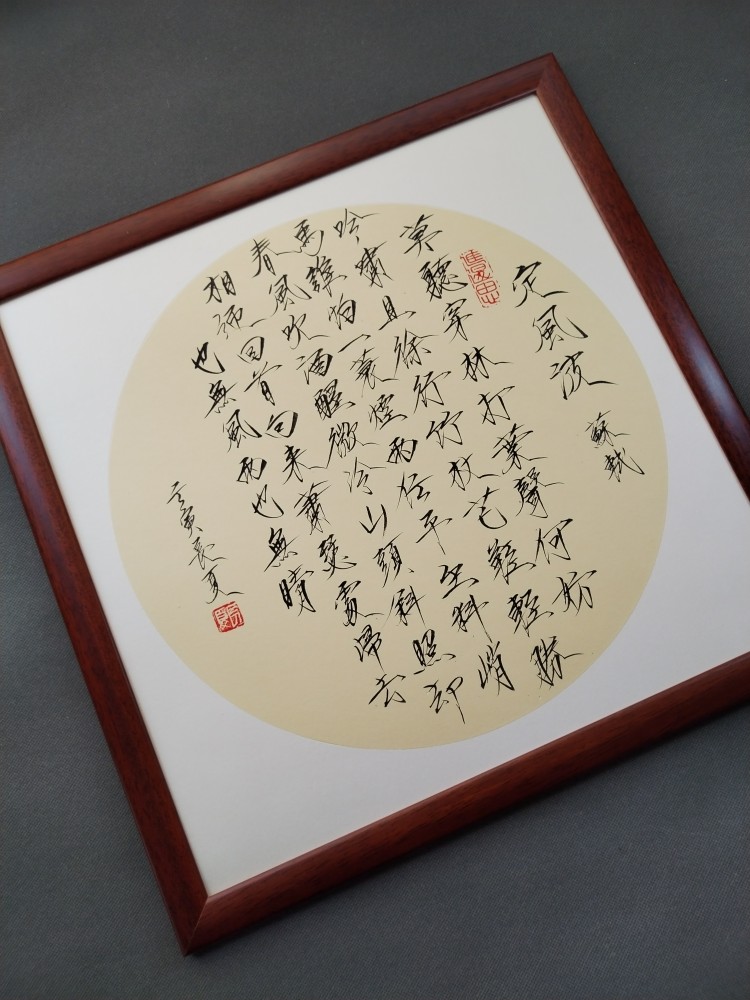 定風波
蘇軾
莫聽穿林打葉聲何妨
吟嘯且徐行竹杖芒鞋輕勝
馬誰怕一蓑煙雨任平生料峭
春風吹酒醒微冷山頭斜照却
相迎回首向来蕭瑟處歸去
也無風雨也無晴
壬寅長夏